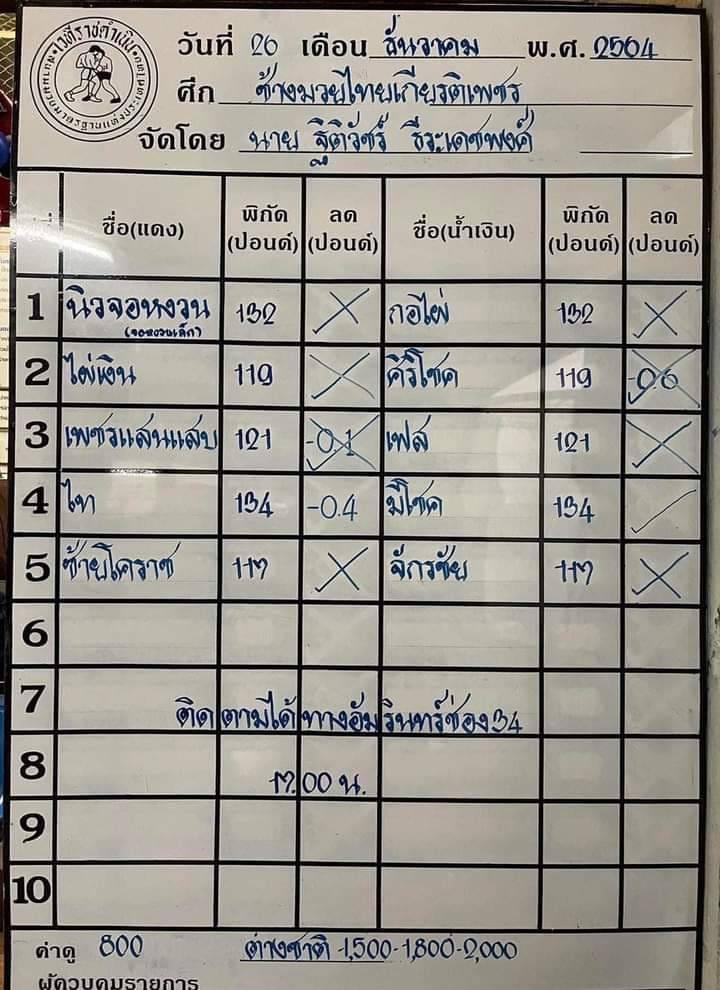 เวทีราชดำเนิน
วันที่ 26 เดือน ธันวาคม พ.ศ. 2564
ศึก ช้างมวยไทยเกียรติเพชร
จัดโดย นาย ฐิติวัชร์ ธีระเดชพงศ์
ชื่อ(แดง) พิกัด (ปอนด์) ลด (ปอนด์) ชื่อ(น้ำเงิน) พิกัด (ปอนด์) ลด (ปอนด์)
1 นิวจอหงวน 132 กอไผ่ 132
(จอหงวนเล็ก)
2 ไผ่เงิน 119 คีรีโชค 119 -0.6
3 เพชรแสนแสบ 121 -0.1 เฟส 121
4 ไท 134 -0.4 มีโชค 134
5 ซ้ายโคราช 117 จักรชัย 117
6
7 ติดตามได้ทางอัมรินทร์ช่อง 34
8 17.00 น.
9
10
ค่าดู 800 ต่างชาติ -1,500-1,800-2,000
ผู้ควบคุมรายการ